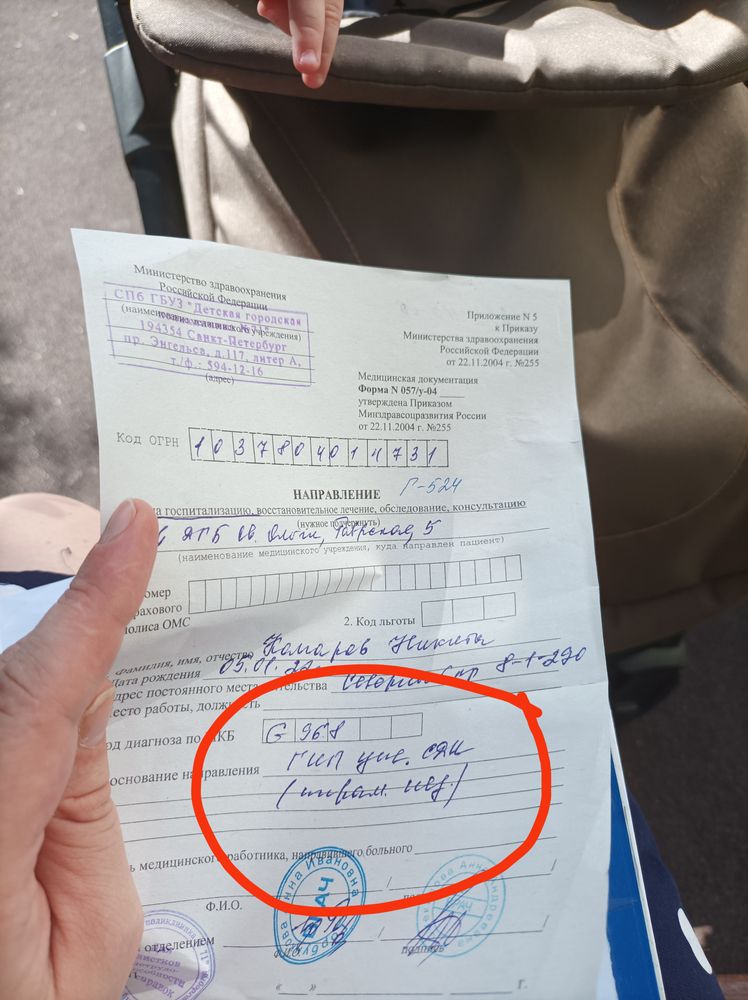 Министерство здравоохранения
Российской Федерации
СПб ГБУЗ "Детская городская
194354 Санкт-Петербург
пр. Энгельса, д.117, литер А,
т./ф.: 594-12-16
(адрес)
Приложение N 5
к Приказу
Министерства здравоохранения
Российской Федерации
от 22.11.2004 г. №255
Медицинская документация
Форма N 057/у-04
утверждена Приказом
Минздравсоцразвития России
от 22.11.2004 г. №255
Код ОГРН 1037804014731
НАПРАВЛЕНИЕ Г-524
на госпитализацию, восстановительное лечение, обследование, консультацию
(нужное подчеркнуть)
ДГБ Св. Ольги, 5
(наименование медицинского учреждения, куда направлен пациент)
омер
рахового
полиса ОМС
2. Код льготы
Фамилия, имя, отчество Комаров Никита
Дата рождения 05.01.22
дрес постоянного места жительства 8-1-290
есто работы, должность
од диагноза по МКБ G 96.8
основание направления
ь медицинского работника, направившего больного
Ф.И.О.
отделением
Ф.И.О.
подпись
ВРАЧ
Анна Ивановна
Анна Андреевна
"___" г.